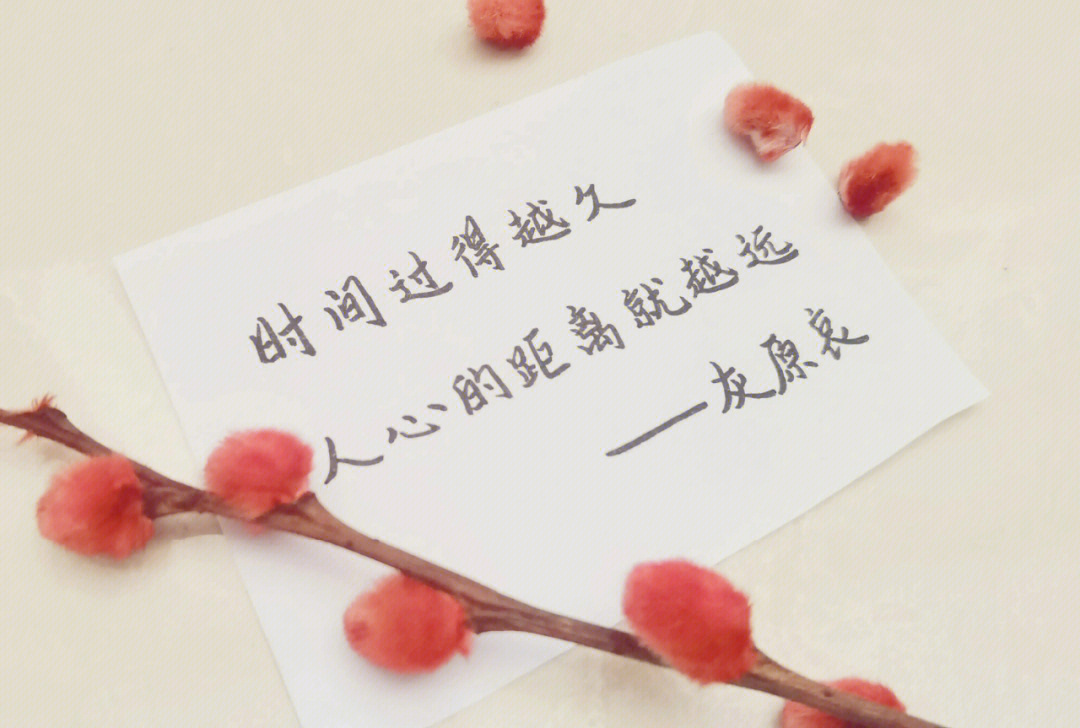 时间过得越久
人心的距离就越远
——灰原哀